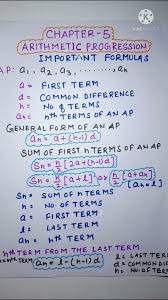 CHAPTER-5
ARITHMETIC PROGRESSION
IMPORTANT FORMULAS
AP: a₁, a₂, a₃, ........, aₙ
a = FIRST TERM
d = COMMON DIFFERENCE
n = NO. OF TERMS
aₙ = nth TERMS OF AN AP
GENERAL FORM OF AN AP
aₙ = a+(n-1)d
SUM OF FIRST n TERMS OF AN AP
Sₙ = n/2 [2a+(n-1)d]
Sₙ = n/2 [a+l] or n/2 [a+aₙ]
[aₙ=l]
Sₙ = SUM OF n TERMS
n = NO. OF TERMS
a = FIRST TERM
l = LAST TERM
aₙ = nth TERM
nth TERM FROM THE LAST TERM
aₙ = l-(n-1)d
l = LAST TERM
d = COMMON
n = NO. OF TERMS